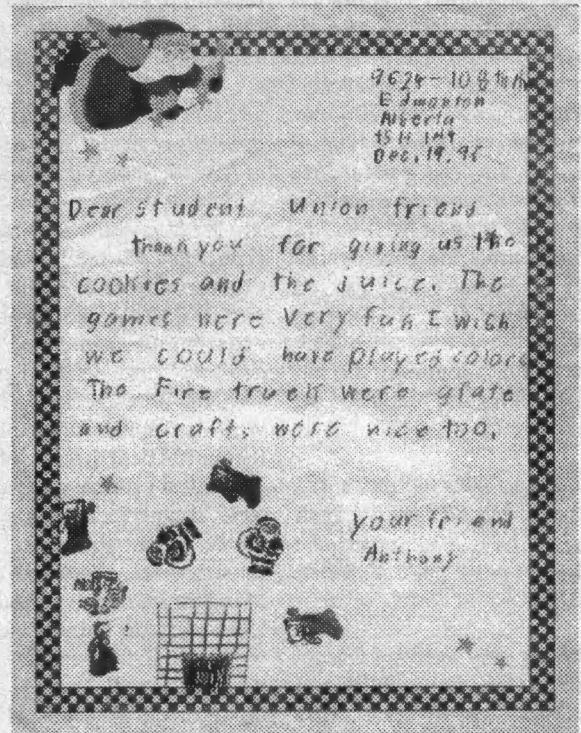 9624-108th
Edmonton
Alberta
T5H 1H9
Dec. 19. 95
Dear student Union friend
thank you for giving us the
cookies and the juice. The
games were Very fun I wish
we could have played colors
The Fire truck were grate
and craft, were nice too.
your friend
Anthony